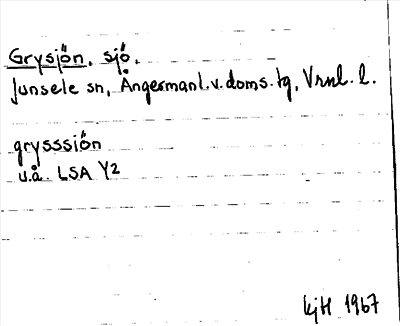 Grysjön, sjö.
Junsele sn, Ångermanl. v. doms. tg, Vrnl. l.
grysssiön
u.å. LSA Y2
kjH 1967